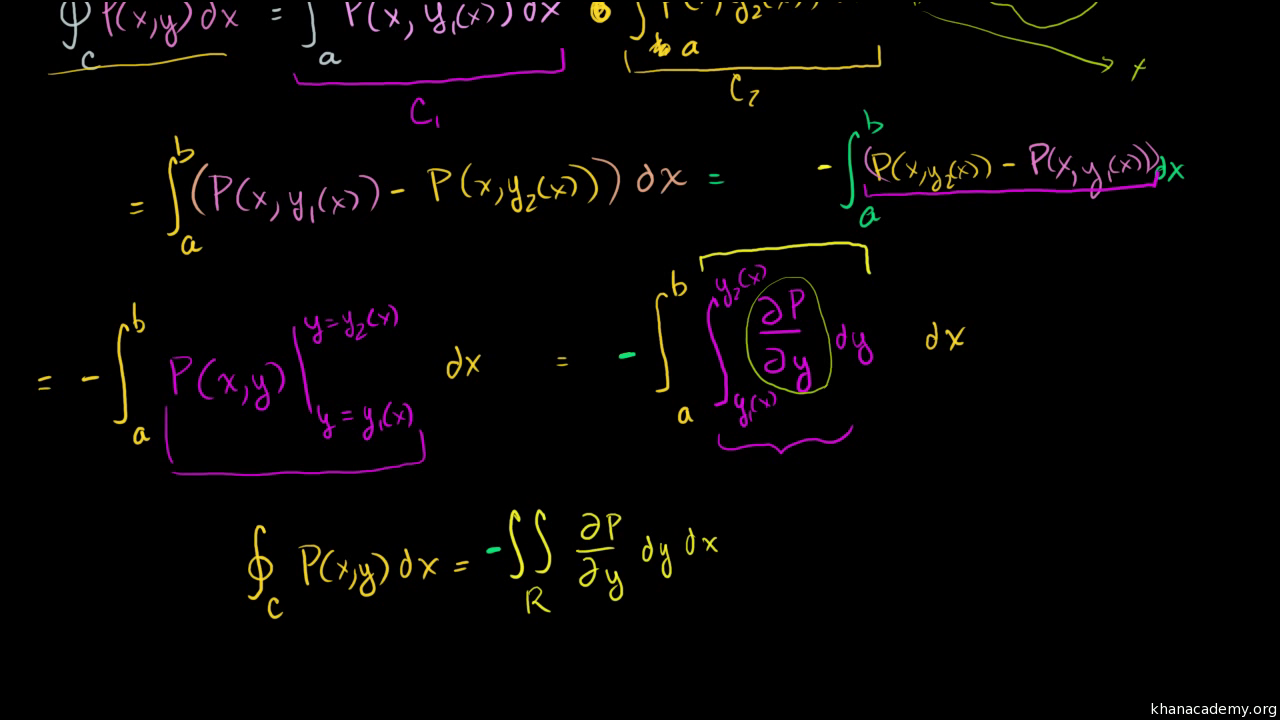 ∮_C P(x,y) dx = ∫_a P(x, y₁(x)) dx ∫_a
x
C₁
C₂
= ∫_a^b (P(x, y₁(x)) - P(x, y₂(x))) dx = - ∫_a^b (P(x, y₂(x)) - P(x, y₁(x))) dx
= - ∫_a^b P(x,y) |_{y = y₁(x)}^{y = y₂(x)} dx = - ∫_a^b ∫_{y₁(x)}^{y₂(x)} ∂P/∂y dy dx
∮_C P(x,y) dx = - ∬_R ∂P/∂y dy dx
khanacademy.org